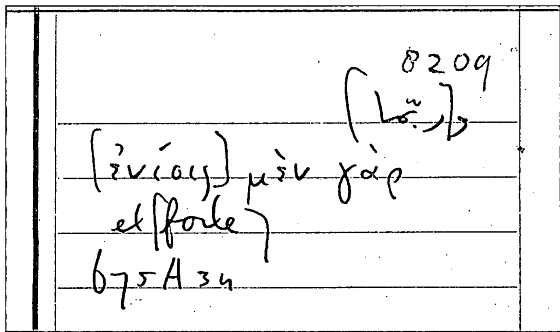 8209
[ἐνίοις] μὲν γὰρ
et forte
675A 34